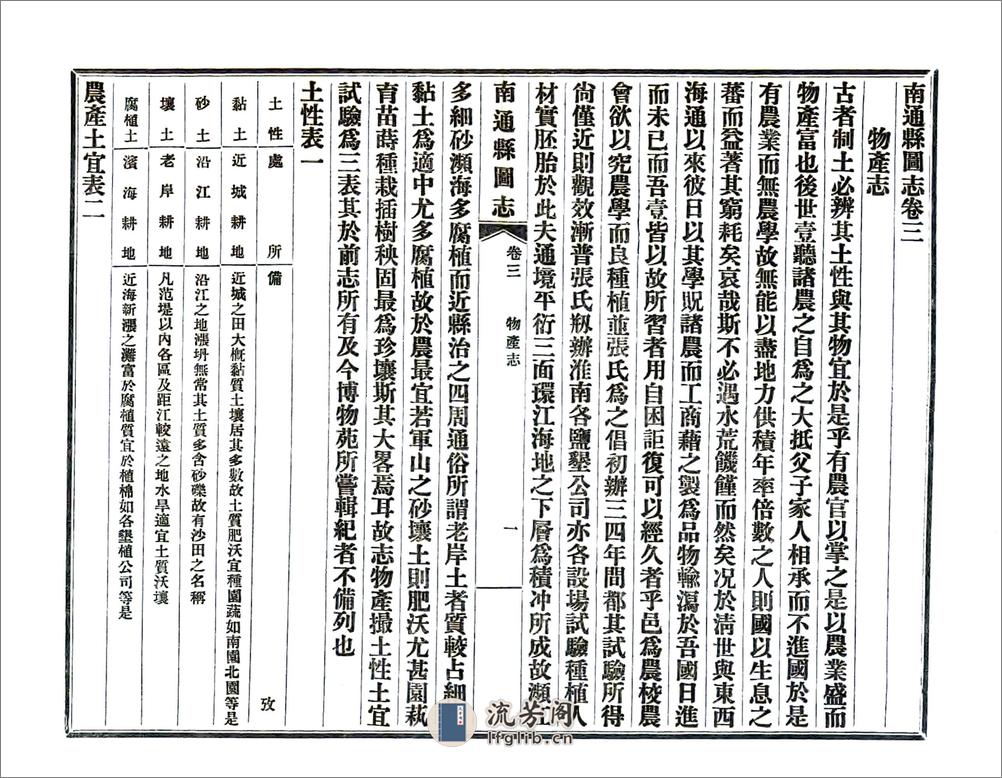 南通縣圖志卷三
物產志
古者制土必辨其土性與其物宜於是乎有農官以掌之是以農業盛而
物產富也後世壹聽諸農之自爲之大抵父子家人相承而不進國於是
有農業而無農學故無能以盡地力供積年率倍數之人則國以生息之
蕃而益著其窮耗矣哀哉斯不必遇水荒饑饉而然矣况於淸世與東西
海通以來彼日以其學貺諸農而工商藉之製爲品物輸瀉於吾國日進
而未已而吾壹皆以故所習者用自困詎復可以經久者乎邑爲農校農
會欲以究農學而良種植並張氏爲之倡初辦三四年間都其試驗所得
尙僅近則觀效漸普張氏刱辦淮南各鹽墾公司亦各設場試驗種植人
材實胚胎於此夫通境平衍三面環江海地之下層爲積冲所成故瀕江
南通縣圖志
卷三
物產志
一
多細砂瀕海多腐植而近縣治之四周通俗所謂老岸土者質較占細
黏土爲適中尤多腐植故於農最宜若軍山之砂壤土則肥沃尤甚園蓺
育苗蒔種栽插樹秧固最爲珍壤斯其大畧焉耳故志物產撮土性土宜
試驗爲三表其於前志所有及今博物苑所嘗輯紀者不備列也
土性表一
土性 處所 備攷
黏土 近城耕地 近城之田大槪黏質土壤居其多數故土質肥沃宜種園蔬如南園北園等是
砂土 沿江耕地 沿江之地漲坍無常其土質多含砂礫故有沙田之名稱
壤土 老岸耕地 凡范堤以內各區及距江較遠之地水旱適宜土質沃壤
腐植土 濱海耕地 近海新漲之灘富於腐植質宜於植棉如各墾植公司等是
農產土宜表二
流芳阁
lfglib.cn